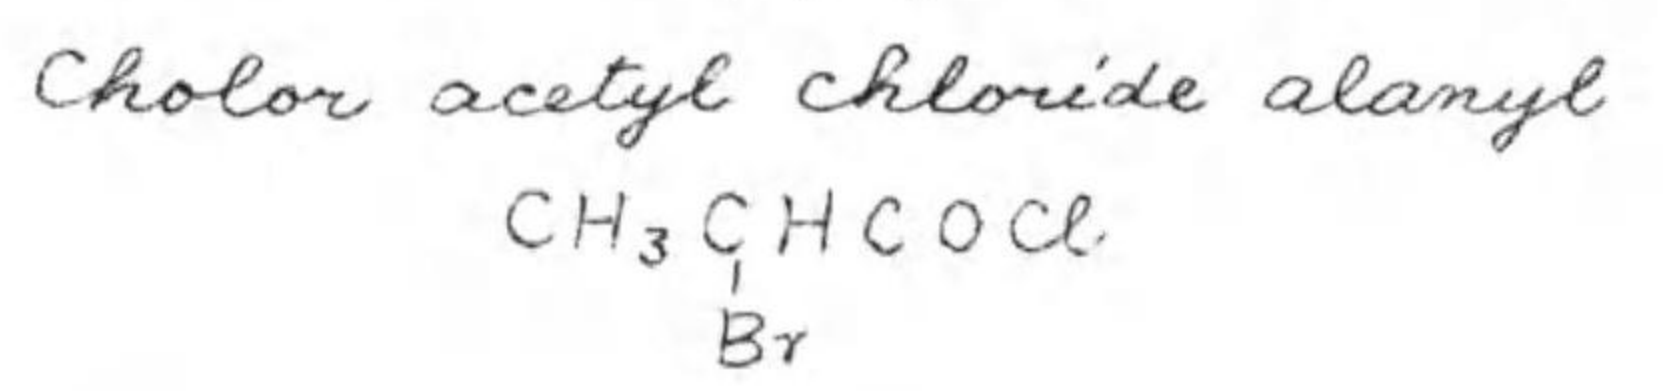 Cholor acetyl chloride alanyl
CH₃CHCOCl
Br